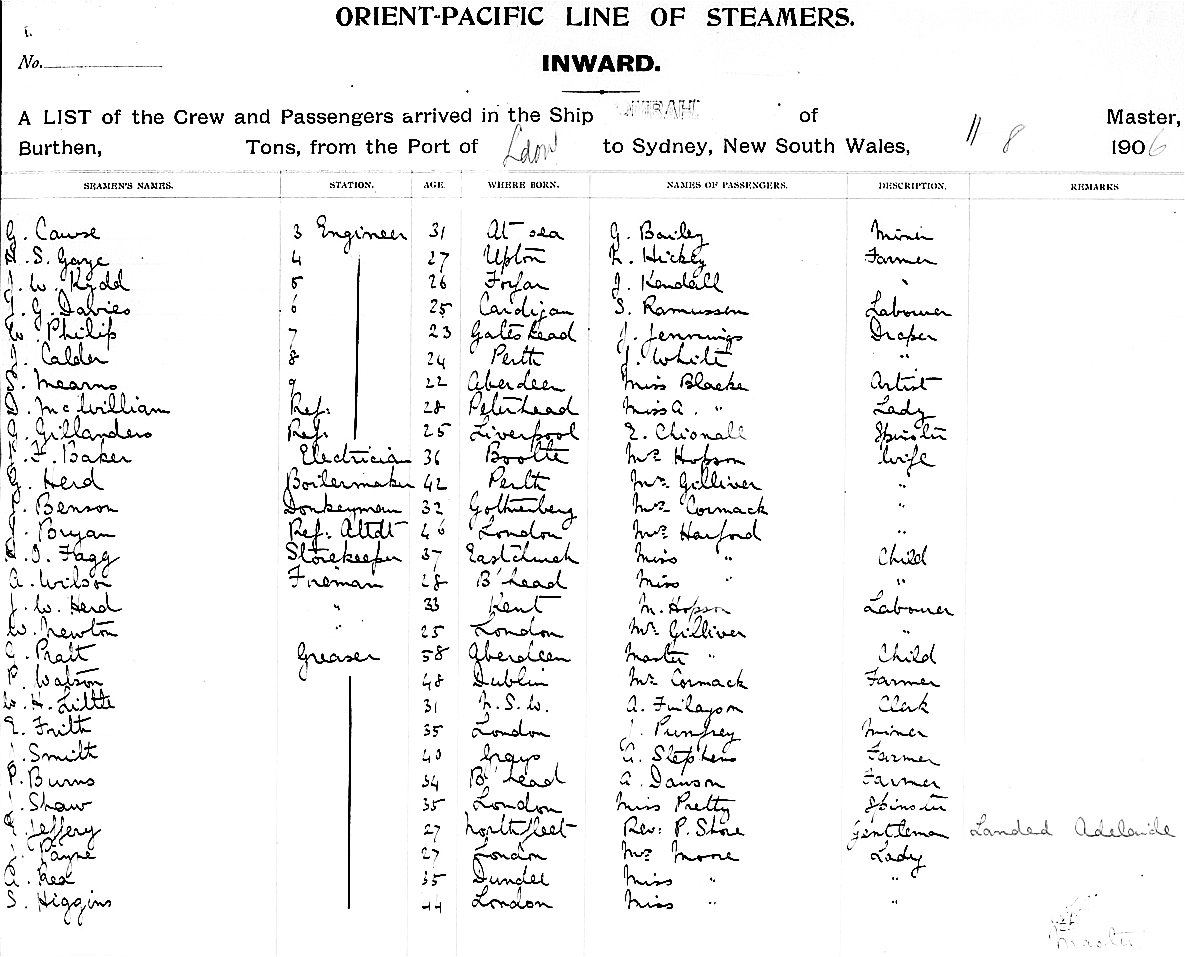 ORIENT-PACIFIC LINE OF STEAMERS.
No.
INWARD.
A LIST of the Crew and Passengers arrived in the Ship of Master,
Burthen, Tons, from the Port of Ldon to Sydney, New South Wales, 11 8 1906
SEAMEN'S NAMES. STATION. AGE. WHERE BORN. NAMES OF PASSENGERS. DESCRIPTION. REMARKS
Cause 3 Engineer 31 At sea G. Bailey Miner
S. Gaye 4 27 Upton Hickey Farmer
W. Kydd 5 26 Forfar J. Kendall "
G. Davies 6 25 Cardigan S. Ramussen Labourer
Philip 7 23 Gateshead J. Jennings Draper
Calder 8 24 Perth J. White "
Mearns 9 22 Aberdeen Miss Blacke Artist
McWilliam Ref. 28 Peterhead Miss A. " Lady
Gillanders Ref. 25 Liverpool E. Chionall Spinster
F. Baker Electrician 36 Bootle Mrs Hopson Wife
Herd Boilermaker 42 Perth Mrs Gilliver "
Benson Donkeyman 32 Gothenberg Mrs Cormack "
Bryan Ref. Attdt 46 London Mrs Harford "
Fagg Storekeeper 37 Eastchurch Miss " Child
A. Wilson Fireman 28 B'head Miss " "
J. W. Herd " 33 Kent M. Hopson Labourer
W. Newton " 25 London Mr. Gilliver "
Pratt Greaser 58 Aberdeen Master " Child
Watson 48 Dublin Mr Cormack Farmer
H. Little 31 N.S.W. A. Finlayson Clerk
E. Frith 35 London J. Pumfrey Miner
Smith 40 Grays A. Stephens Farmer
P. Burns 34 B'head A. Dawson Farmer
Shaw 35 London Miss Pretty Spinster
Jeffery 27 Northfleet Rev: P. Shore Gentleman Landed Adelaide
Payne 27 London Mrs Moore Lady
Rea 35 Dundee Miss " "
S. Higgins 44 London Miss " "